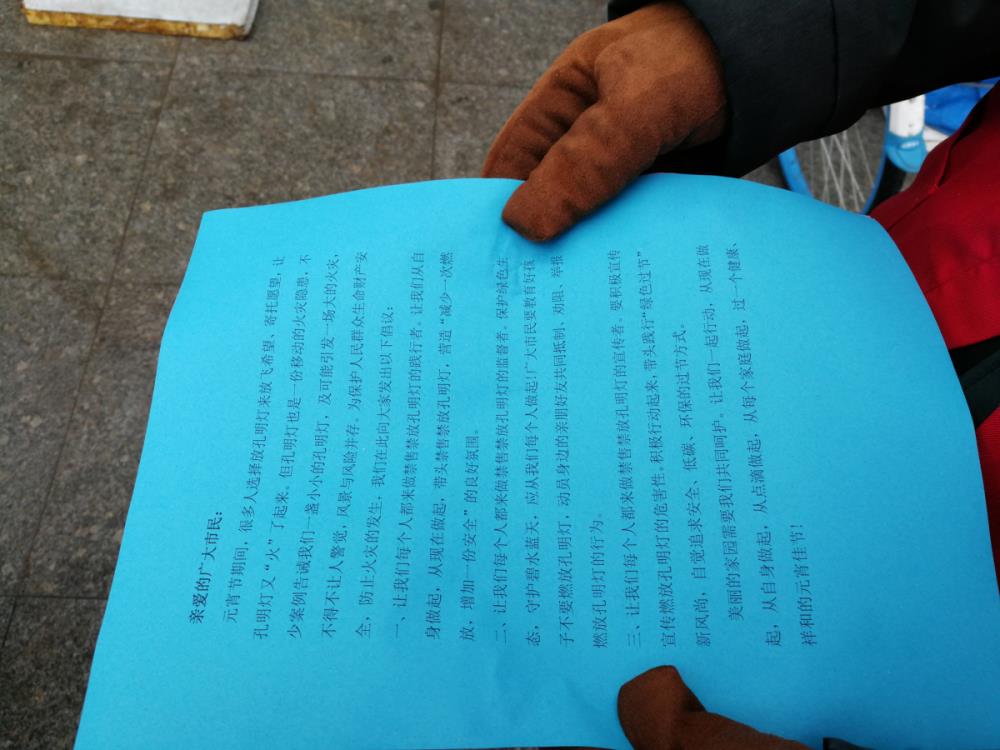 亲爱的广大市民：
元宵节期间，很多人选择放孔明灯来放飞希望、寄托愿望，让
孔明灯又“火”了起来。但孔明灯也是一份移动的火灾隐患，不
少案例告诫我们一盏小小的孔明灯，及可能引发一场大的火灾，
不得不让人警觉，风景与风险并存。为保护人民群众生命财产安
全，防止火灾的发生，我们在此向大家发出以下倡议：
一、让我们每个人都来做禁售禁放孔明灯的践行者。让我们从自
身做起，从现在做起，带头禁售禁放孔明灯，营造“减少一次燃
放，增加一份安全”的良好氛围。
二、让我们每个人都来做禁售禁放孔明灯的监督者。保护绿色生
态，守护碧水蓝天，应从我们每个人做起！广大市民要教育好孩
子不要燃放孔明灯，动员身边的亲朋好友共同抵制、劝阻、举报
燃放孔明灯的行为。
三、让我们每个人都来做禁售禁放孔明灯的宣传者。要积极宣传
宣传燃放孔明灯的危害性。积极行动起来，带头践行“绿色过节”
新风尚，自觉追求安全、低碳、环保的过节方式。
美丽的家园需要我们共同呵护。让我们一起行动，从现在做
起，从自身做起，从点滴做起，从每个家庭做起，过一个健康、
祥和的元宵佳节！